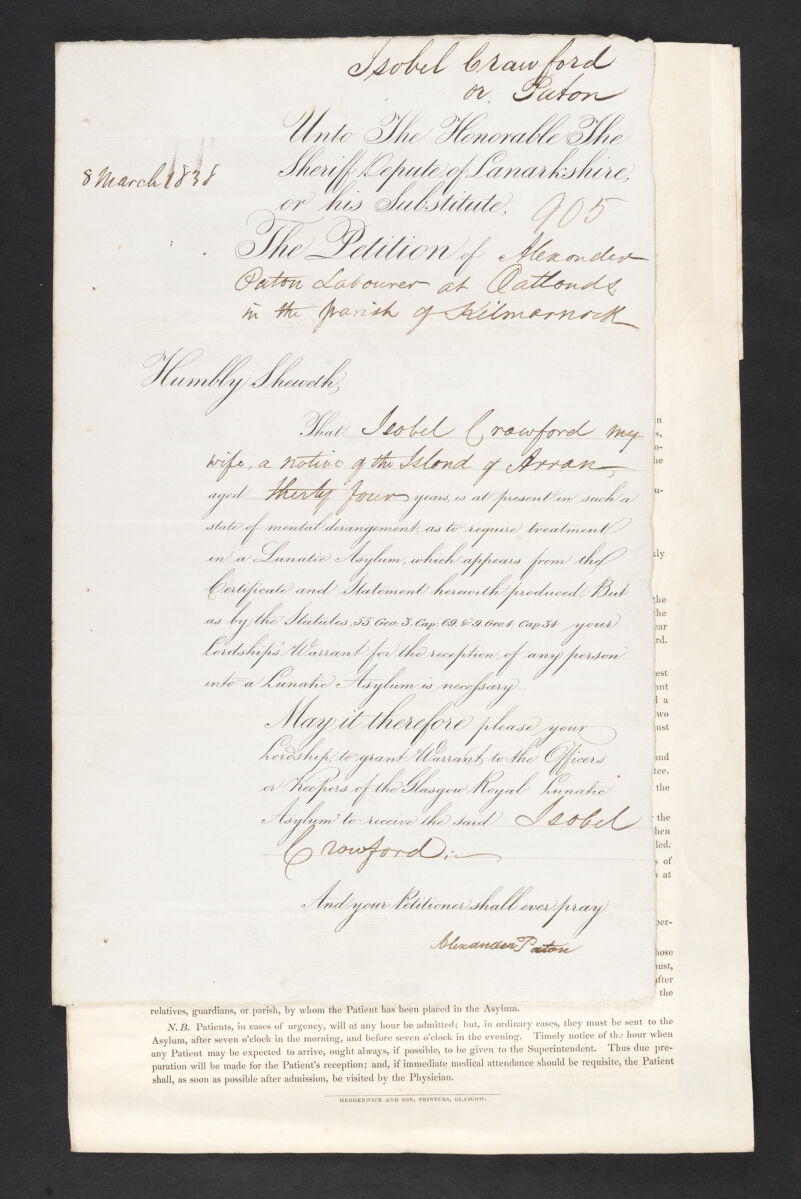 Isobel Crawford
or Paton
8 March 1838
Unto The Honorable The
Sheriff Depute of Lanarkshire,
or his Substitute,
905
The Petition of Alexander
Paton Labourer at Oatlands
in the parish of Kilmarnock
Humbly Sheweth,
That Isobel Crawford my
wife, a native of the Island of Arran,
aged thirty four years, is at present in such a
state of mental derangement, as to require treatment
in a Lunatic Asylum, which appears from the
Certificate and Statement herewith produced. But
as by the Statutes, 55 Geo: 3. Cap: 69. & 9. Geo 4. Cap 34 your
Lordship's Warrant for the reception of any person
into a Lunatic Asylum is necessary
May it therefore please your
Lordship, to grant Warrant, to the Officers
or Keepers of the Glasgow Royal Lunatic
Asylum to receive the said Isobel
Crawford;
And your Petitioner shall ever pray
Alexander Paton
relatives, guardians, or parish, by whom the Patient has been placed in the Asylum.
N.B. Patients, in cases of urgency, will at any hour be admitted; but, in ordinary cases, they must be sent to the
Asylum, after seven o'clock in the morning, and before seven o'clock in the evening. Timely notice of the hour when
any Patient may be expected to arrive, ought always, if possible, to be given to the Superintendent. Thus due pre-
paration will be made for the Patient's reception; and, if immediate medical attendance should be requisite, the Patient
shall, as soon as possible after admission, be visited by the Physician.
HEDDERWICK AND SON, PRINTERS, GLASGOW.